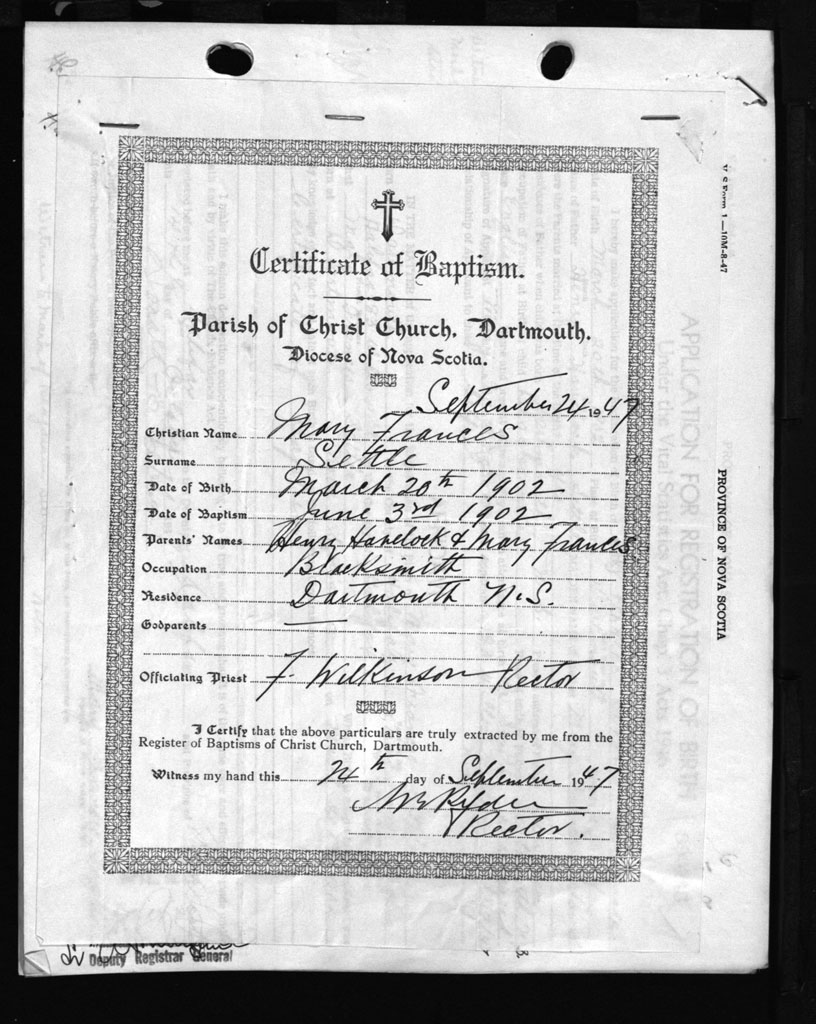 Certificate of Baptism.
Parish of Christ Church, Dartmouth.
Diocese of Nova Scotia.
September 24 1947
Christian Name Mary Frances
Surname Settle
Date of Birth March 20th 1902
Date of Baptism June 3rd 1902
Parents' Names Henry Havelock & Mary Frances
Occupation Blacksmith
Residence Dartmouth N.S.
Godparents —
Officiating Priest F. Wilkinson Rector
I Certify that the above particulars are truly extracted by me from the
Register of Baptisms of Christ Church, Dartmouth.
Witness my hand this 24th day of September 1947
Rector.
Deputy Registrar General
V. S. Form 1—10M-8-47
PROVINCE OF NOVA SCOTIA
APPLICATION FOR REGISTRATION OF BIRTH
Under the Vital Statistics Act